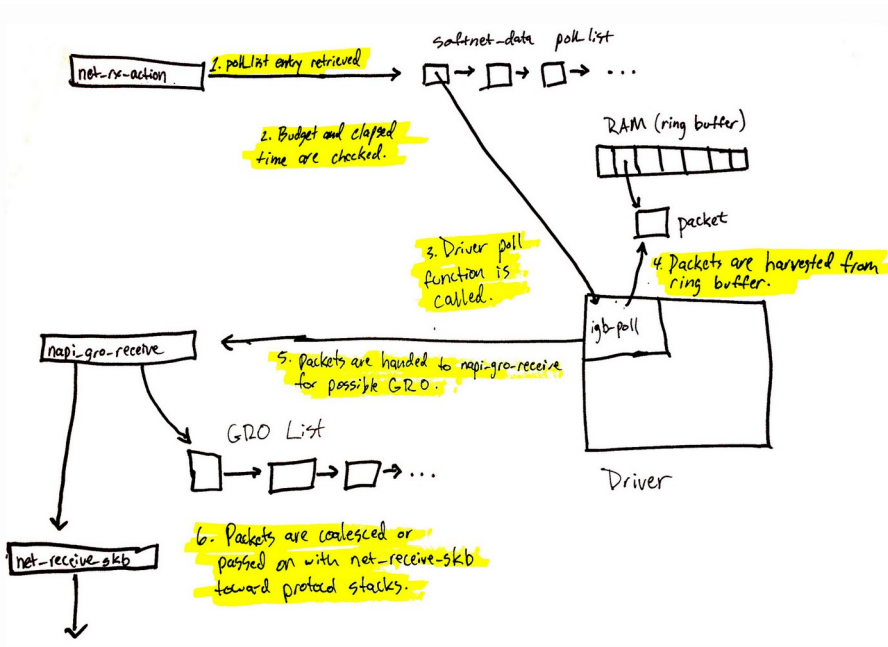 softnet_data poll list
net_rx_action
1. poll_list entry retrieved
...
2. Budget and elapsed
time are checked.
RAM (ring buffer)
packet
3. Driver poll
function is
called.
4. Packets are harvested from
ring buffer.
igb_poll
napi_gro_receive
5. Packets are handed to napi_gro_receive
for possible GRO.
GRO List
...
Driver
6. Packets are coalesced or
passed on with net_receive_skb
toward protocol stacks.
net_receive_skb